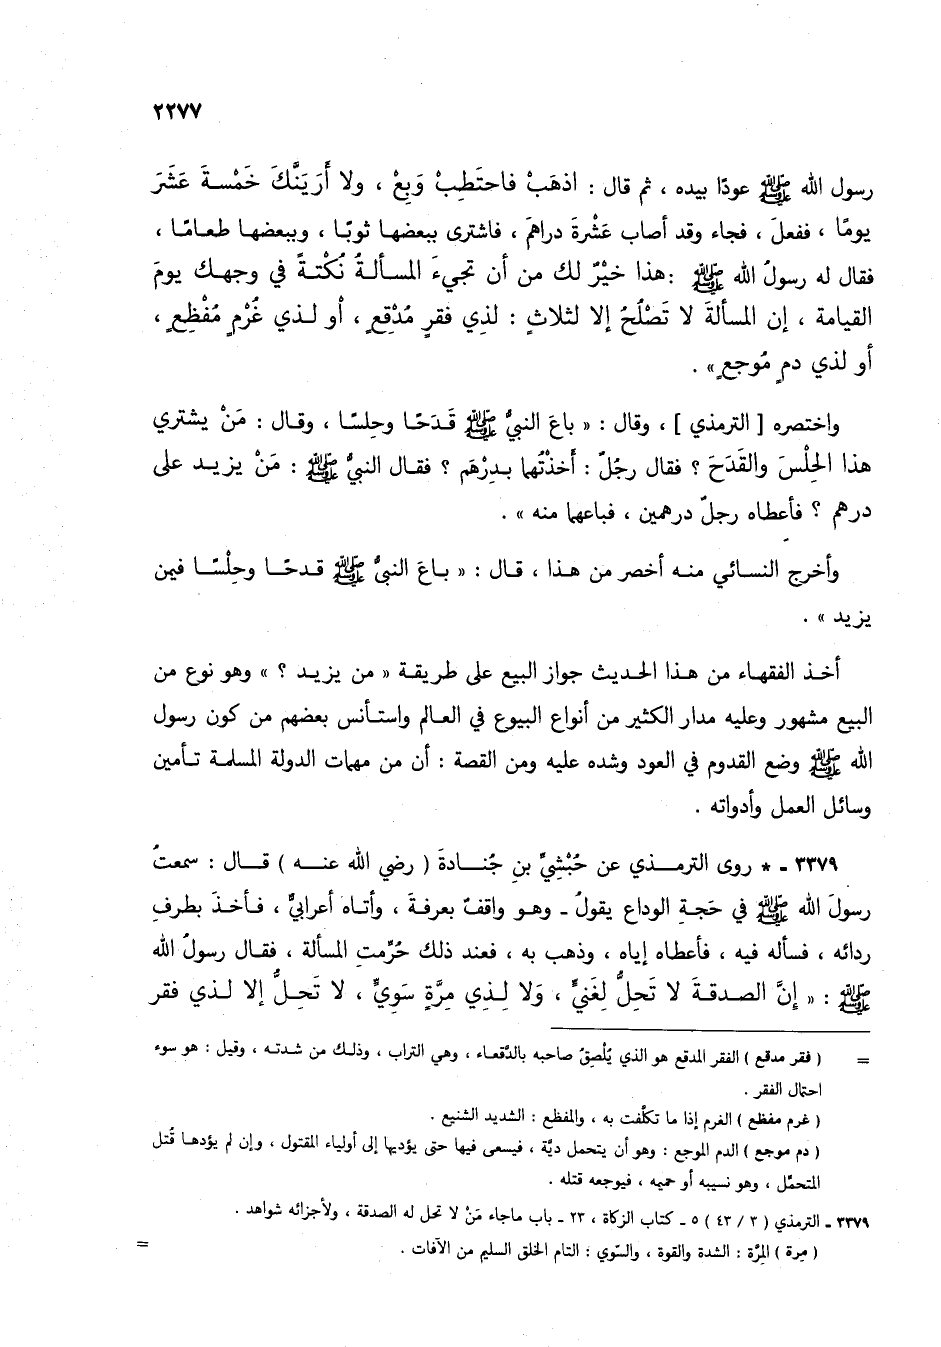 ٢٢٧٧
رسول الله ﷺ عودًا بيده ، ثم قال : اذهَبْ فاحتَطِبْ وَبِعْ ، ولا أَرَيَنَّكَ خَمْسةَ عَشَرَ
يومًا ، ففعلَ ، فجاء وقد أصاب عَشْرةَ دراهمَ ، فاشترى ببعضها ثوبًا ، وببعضها طعامًا ،
فقال له رسولُ الله ﷺ :هذا خيْرٌ لك من أن تجيءَ المسألةُ نُكْتةً في وجهك يومَ
القيامة ، إن المسألةَ لا تَصْلُحُ إلا لثلاثٍ : لذِي فقرٍ مُدْقِعٍ ، أوْ لذي غُرْمٍ مُفْظِعٍ ،
أو لذي دمٍ مُوجعٍ» .
واختصره [ الترمذي ] ، وقال : « باعَ النبيُّ ﷺ قَدَحًا وحِلسًا ، وقال : مَنْ يشتري
هذا الحِلْسَ والقَدَحَ ؟ فقال رجُلٌ : أخذْتُهما بدِرْهَم ؟ فقال النبيُّ ﷺ : مَنْ يزيد على
درهم ؟ فأعطاه رجلٌ درهمين ، فباعهما منه » .
وأخرج النسائي منه أخصر من هذا ، قال : « باعَ النبيُّ ﷺ قدحًا وحِلْسًا فيمن
يزيد » .
أخذ الفقهاء من هذا الحديث جواز البيع على طريقة « من يزيد ؟ » وهو نوع من
البيع مشهور وعليه مدار الكثير من أنواع البيوع في العالم واستأنس بعضهم من كون رسول
الله ﷺ وضع القدوم في العود وشده عليه ومن القصة : أن من مهمات الدولة المسلمة تأمين
وسائل العمل وأدواته .
٣٣٧٩ - * روى الترمذي عن حُبْشِيِّ بنِ جُنادةَ ( رضي الله عنه ) قال : سمعتُ
رسولَ الله ﷺ في حَجةِ الوداع يقولُ - وهو واقفٌ بعرفةَ ، وأتاه أعرابيٌّ ، فأخذَ بطرفِ
ردائه ، فسأله فيه ، فأعطاه إياه ، وذهب به ، فعند ذلك حُرِّمتِ المسألة ، فقال رسولُ الله
ﷺ : « إنَّ الصدقةَ لا تَحِلُّ لِغَنيٍّ ، وَلا لِذِي مِرَّةٍ سَوِيٍّ ، لا تَحِلُّ إلا لذي فقر
= ( فقر مدقع ) الفقر المدقع هو الذي يُلْصِقُ صاحبه بالدَّقعاء ، وهي التراب ، وذلك من شدته ، وقيل : هو سوء
احتمال الفقر .
( غرم مفظع ) الغرم إذا ما تكلَّفت به ، والمفظع : الشديد الشنيع .
( دم موجع ) الدم الموجع : وهو أن يتحمل ديَّة ، فيسعى فيها حتى يؤديها إلى أولياء المقتول ، وإن لم يؤدها قُتل
المتحمَّل ، وهو نسيبه أو حميه ، فيوجعه قتله .
٣٣٧٩ - الترمذي ( ٣ / ٤٣ ) ٥ - كتاب الزكاة ، ٢٣ - باب ماجاء مَنْ لا تحل له الصدقة ، ولأجزائه شواهد .
( مِرة ) المِرَّة : الشدة والقوة ، والسَّوي : التام الخلق السليم من الآفات . =